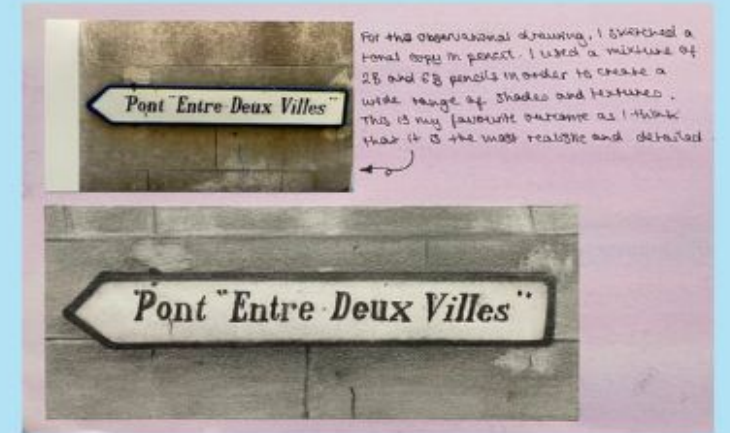 Pont "Entre Deux Villes"
For this observational drawing, I sketched a
tonal copy in pencil. I used a mixture of
2B and 6B pencils in order to create a
wide range of shades and textures.
This is my favourite outcome as I think
that it is the most realistic and detailed
Pont "Entre Deux Villes"